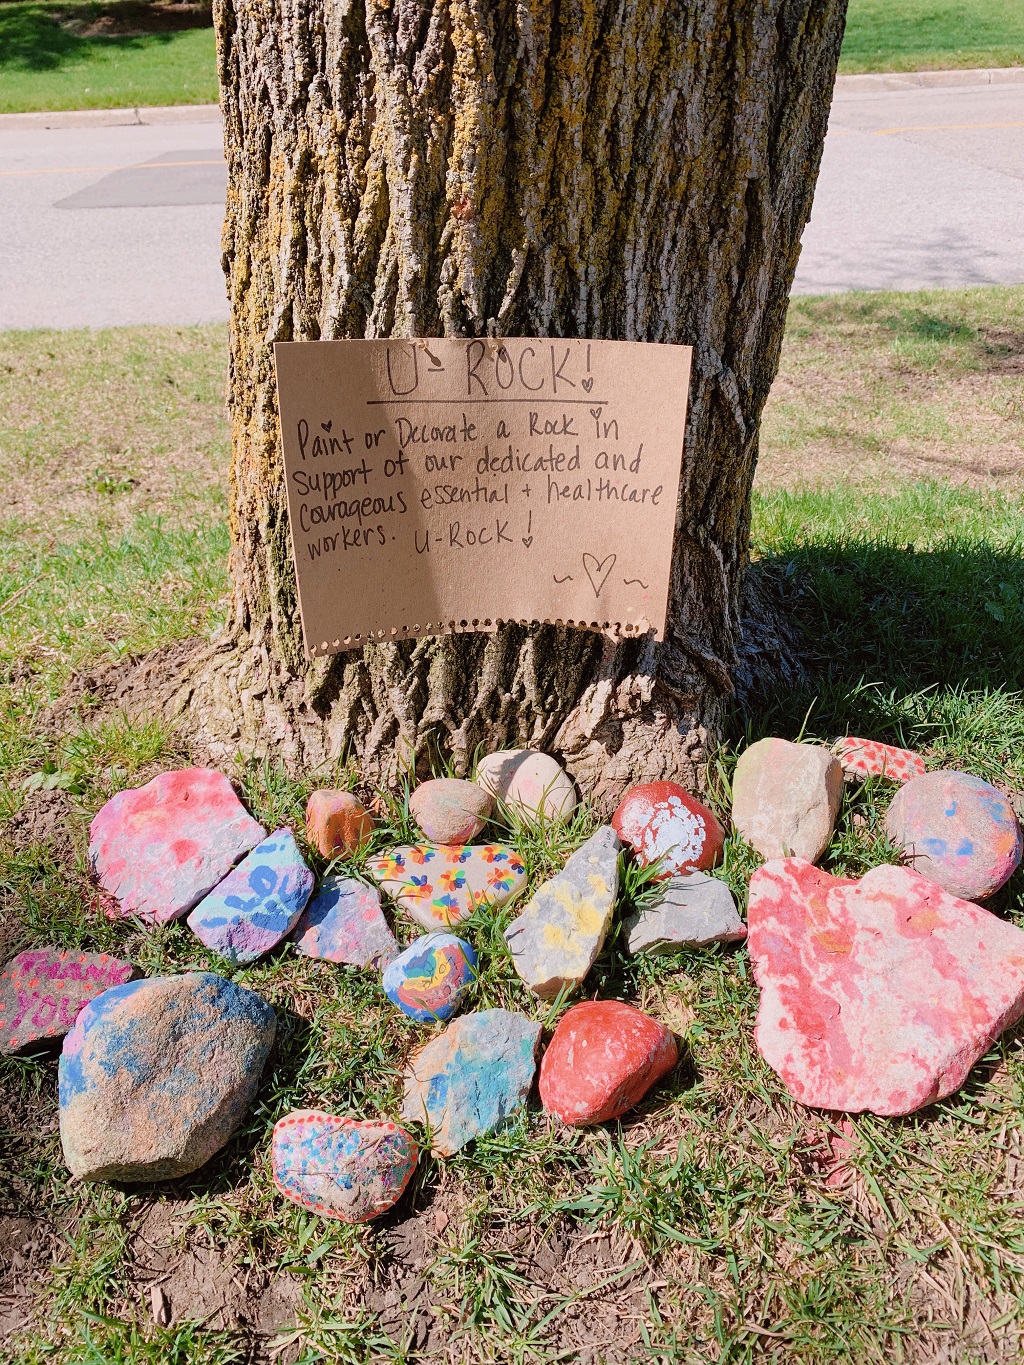 U-ROCK!
Paint or Decorate a Rock in
support of our dedicated and
courageous essential + healthcare
workers. U-ROCK!
THANK
YOU